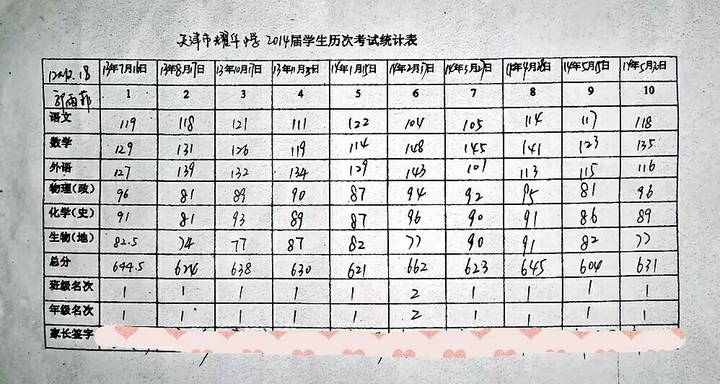 天津市耀华中学 2014届学生历次考试统计表
13年8月17日 13年10月17日 14年1月15日 14年2月17日 14年3月27日 14年4月28日 14年5月15日 14年5月30日
1 2 3 4 5 6 7 8 9 10
语文 119 118 121 111 122 104 105 114 117 118
数学 129 131 126 119 114 148 145 141 123 135
外语 127 139 132 134 129 143 101 113 115 116
物理(政) 96 81 89 90 87 94 92 95 81 96
化学(史) 91 81 93 89 87 96 90 91 86 89
生物(地) 82.5 74 77 87 82 77 90 91 82 77
总分 644.5 624 638 630 621 662 623 645 604 631
班级名次 1 1 1 1 1 2 1 1 1 1
年级名次 1 1 1 1 1 2 1 1 1 1
家长签字